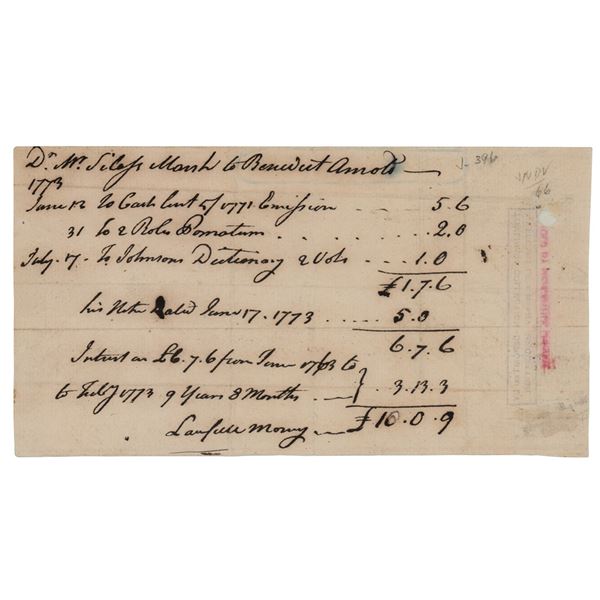 Dr. Mr. Silass Marsh to Benedict Arnold
1773
June 12 to Cash lent of 1771 Emission - - 5.6
31 to 2 Roles Pomatum . . . . . 2.0
July. 17. To Johnsons Dictionary 2 Vols - ... 1.0
£1.7.6
his Note Dated June 17. 1773 ..... 5.0
6.7.6
Intrest on £6.7.6 from June 1763 to
to Feby 1773 9 Years 8 Months . — } 3.13.3
Lawfull Money — £10.0.9
J-396
66